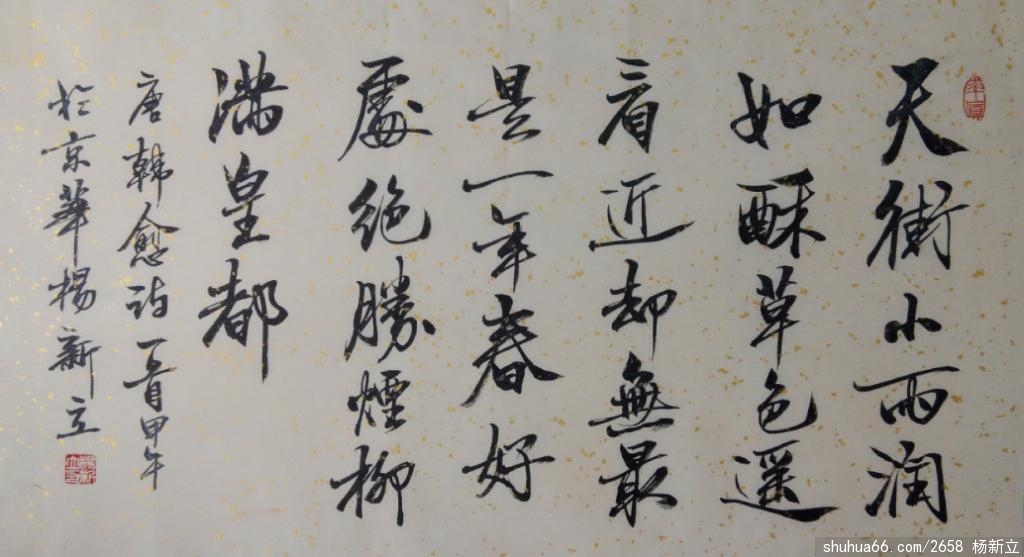 天街小雨潤
如酥草色遥
看近却無最
是一年春好
處絕勝煙柳
滿皇都
唐韓愈詩一首甲午
於京華楊新立
shuhua66.com/2658 杨新立